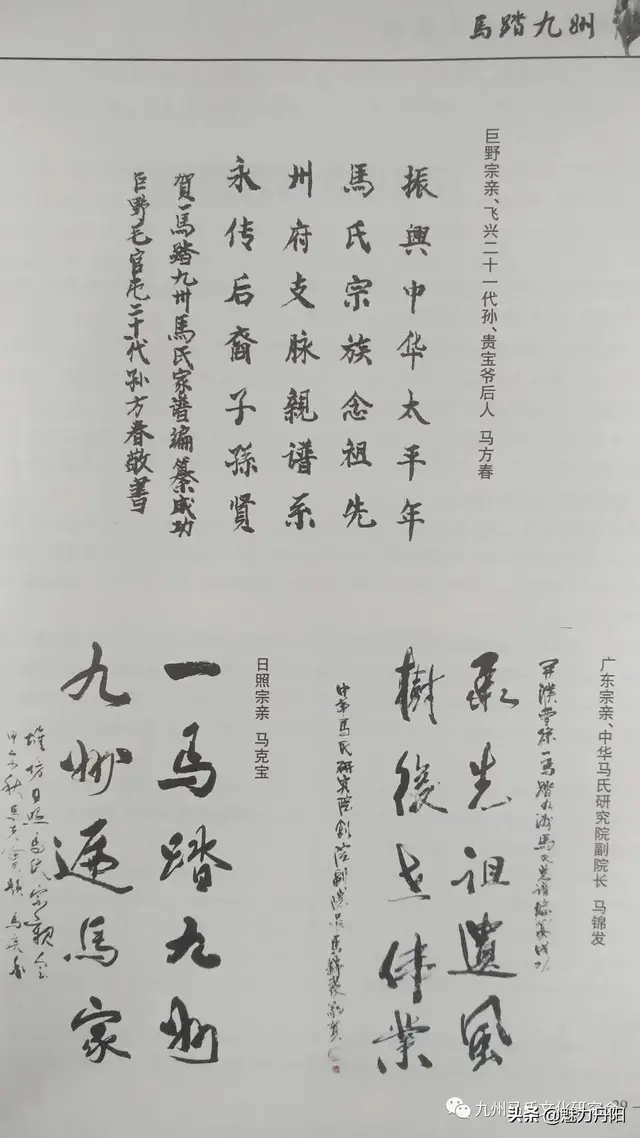 馬踏九州
巨野宗亲、飞兴二十一代孙、贵宝爷后人 马方春
振興中华太平年
馬氏宗族念祖先
州府支脉親谱系
永传后裔子孫贤
賀一馬踏九州馬氏家谱编纂成功
巨野毛官屯二十代孙方春敬書
广东宗亲、中华马氏研究院副院长 马锦发
一马踏九州馬氏
承先祖遺風
樹後世偉業
中华馬氏研究院创院副院長馬錦发敬賀
日照宗亲 马克宝
一馬踏九州
九州遍馬家
日照馬氏宗親会
九州马氏文化研究会
29
头条 @魅力丹阳